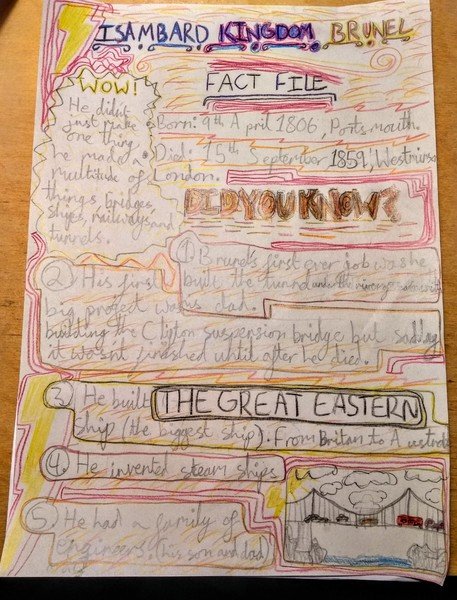 ISAMBARD KINGDOM BRUNEL
FACT FILE
WOW!
He didnt
just make
one thing
he made a
multitude of
things, bridges,
ships, railways and
tunnels.
Born: 9th April 1806, Portsmouth.
Died: 15th September 1859, Westminster
London.
DID YOU KNOW?
① Brunel's first ever job was he
built the tunnel under the river
② His first
big project was
building the Clifton suspension bridge but sadly
it wasn't finished until after he died.
③ He built THE GREAT EASTERN
ship (the biggest ship). From Britan to Australia
④ He invented steam ships
⑤ He had a family of
engineers. (his son and dad)